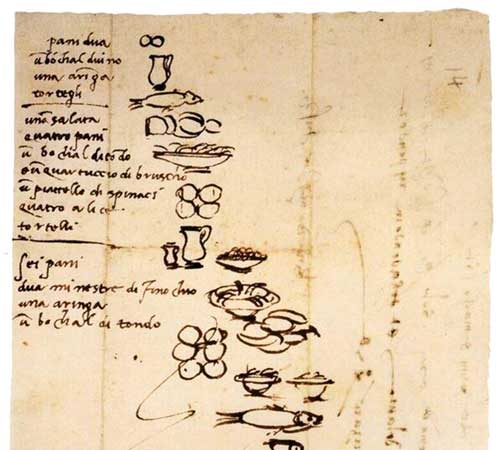 pani dua
ū bochal duino
una aringa
tortegli
una salata
quatro pani
ū bochal di tōdo
e ū quartuccio di bruscho
ū piattello di spinaci
quatro alice
tortelli
sei pani
dua minestre di finochio
una aringa
ū bochal di tondo